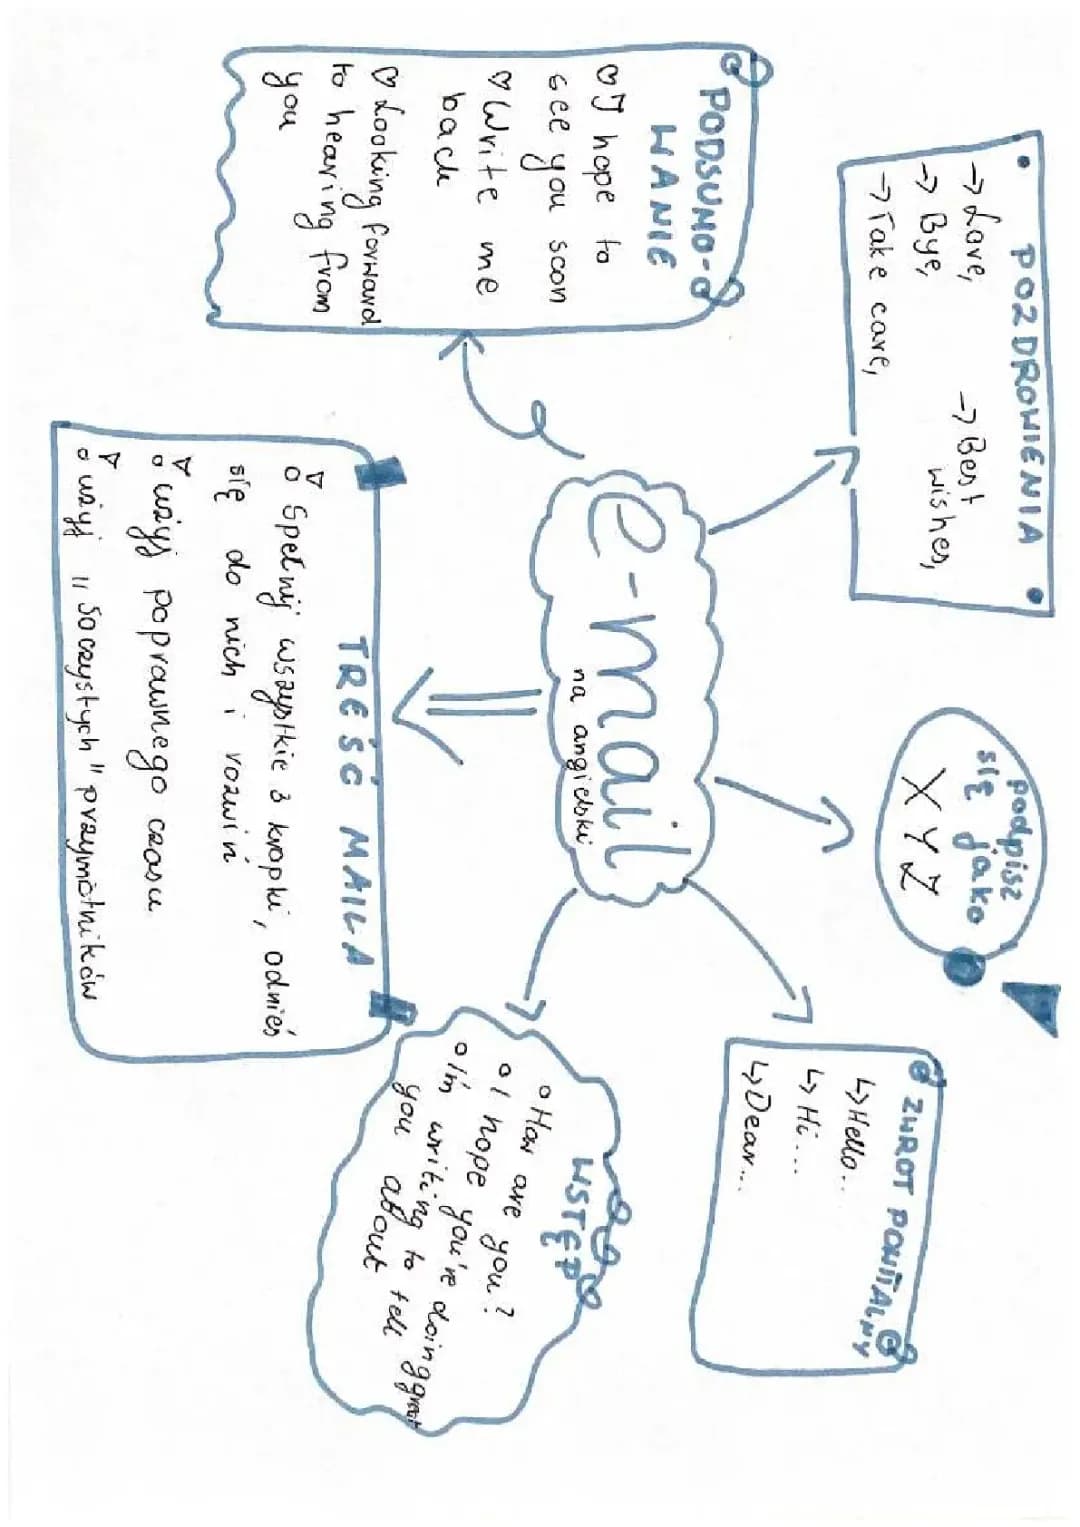 e-mail
na angielski
POZDROWIENIA
→ Love,
→ Bye,
→ Take care,
→ Best
wishes,
podpisz
się jako
XYZ
ZWROT POWITALNY
↳ Hello...
↳ Hi...
↳ Dear...
WSTĘP
○ How are you?
○ I hope you're doing great
○ I'm writing to tell
you about
TREŚĆ MAILA
Spełnij wszystkie 3 kropki, odnieś
się do nich i rozwiń
użyj poprawnego czasu
użyj "soczystych" przymiotników
PODSUMO-
WANIE
♡ I hope to
see you soon
♡ Write me
back
♡ Looking forward
to hearing from
you